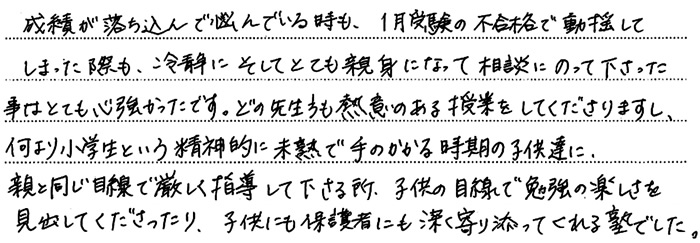 成績が落ち込んで悩んでいる時も、1月受験の不合格で動揺して
しまった際も、冷静にそしてとても親身になって相談にのって下さった
事はとても心強かったです。どの先生方も熱意のある授業をしてくださりますし、
何より小学生という精神的に未熟で手のかかる時期の子供達に、
親と同じ目線で厳しく指導して下さる所、子供の目線で勉強の楽しさを
見出してくださったり、子供にも保護者にも深く寄り添ってくれる塾でした。